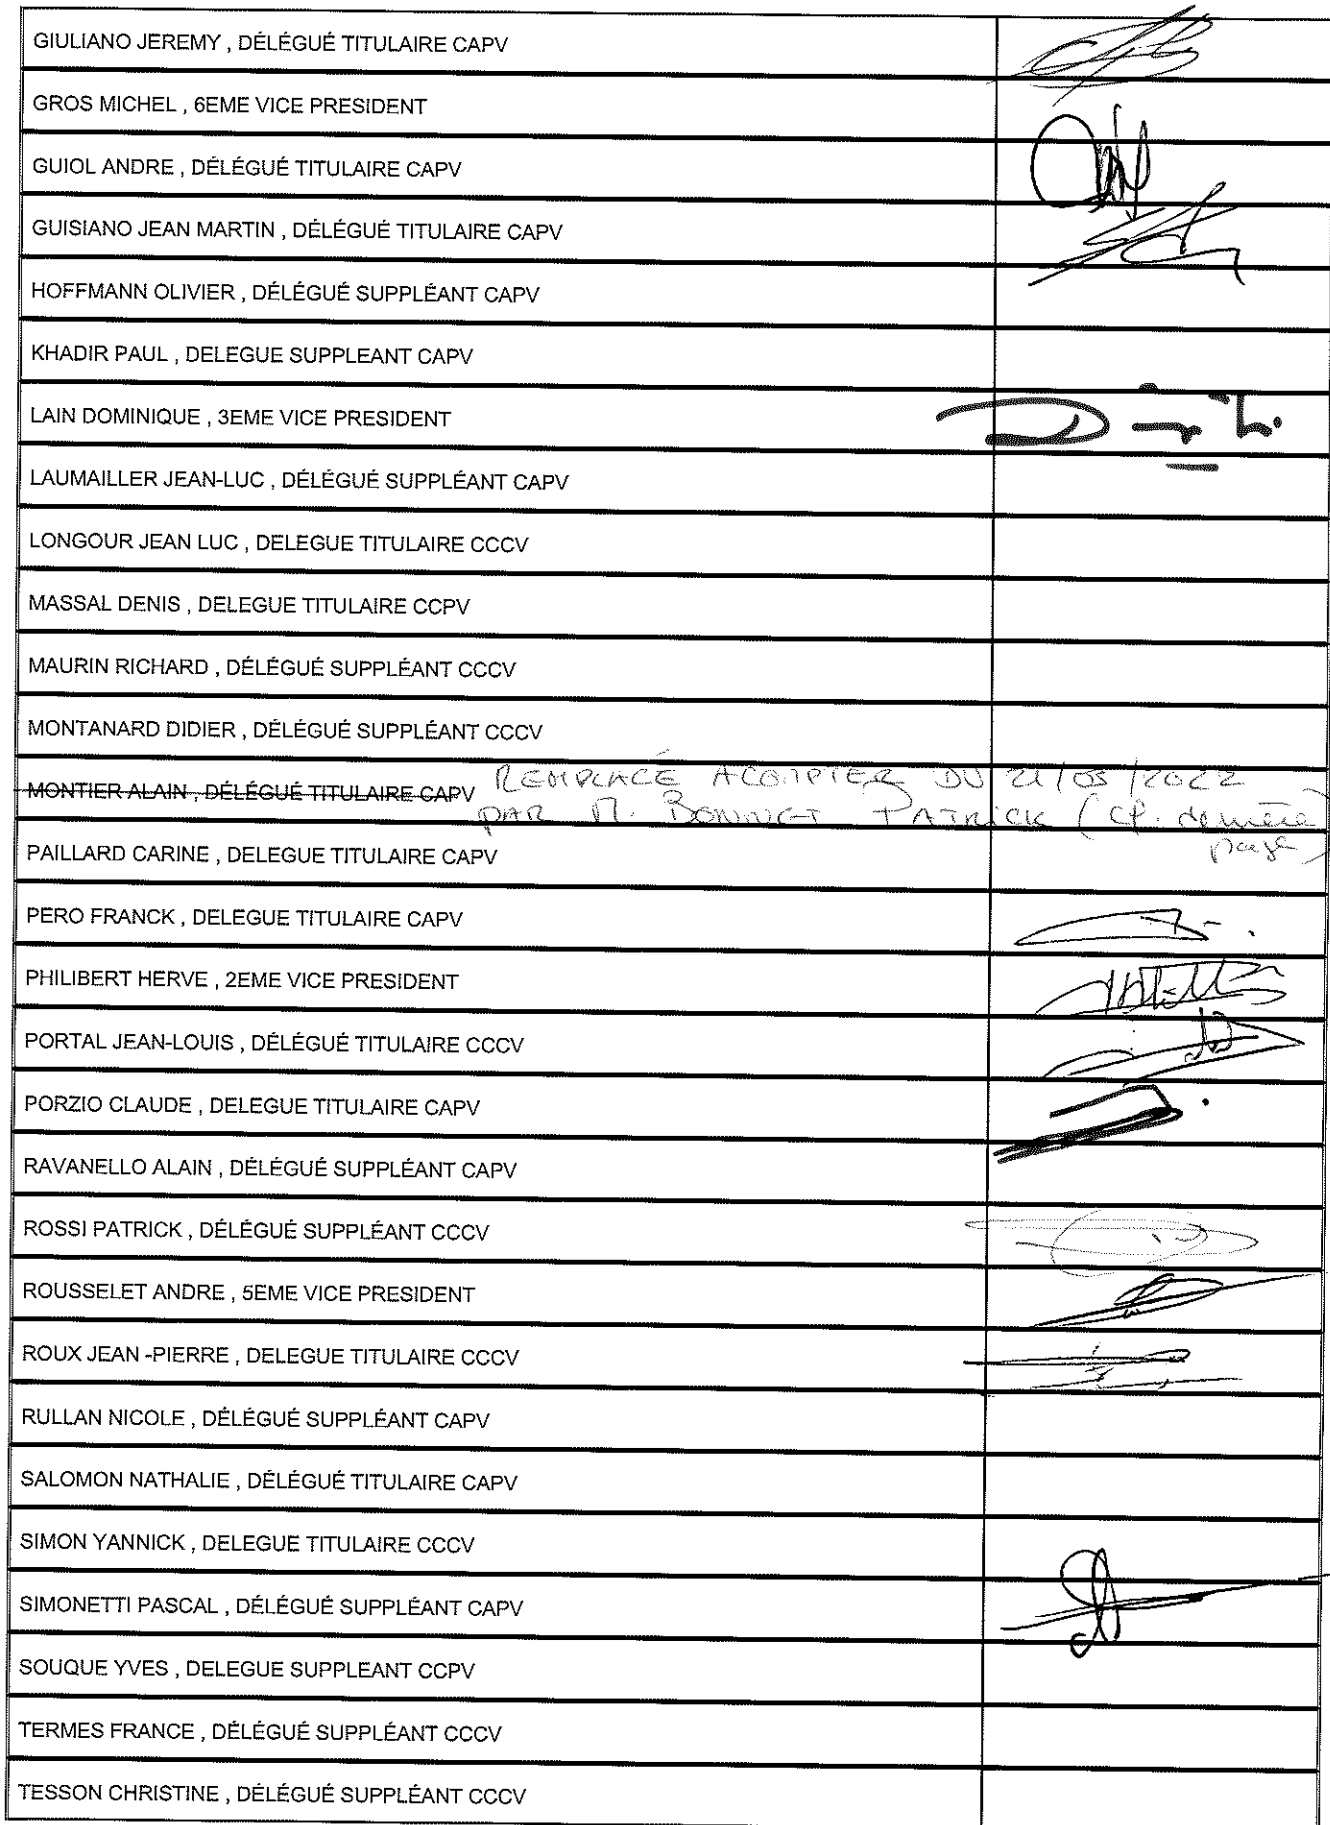 GIULIANO JEREMY , DÉLÉGUÉ TITULAIRE CAPV
GROS MICHEL , 6EME VICE PRESIDENT
GUIOL ANDRE , DÉLÉGUÉ TITULAIRE CAPV
GUISIANO JEAN MARTIN , DÉLÉGUÉ TITULAIRE CAPV
HOFFMANN OLIVIER , DÉLÉGUÉ SUPPLÉANT CAPV
KHADIR PAUL , DELEGUE SUPPLEANT CAPV
LAIN DOMINIQUE , 3EME VICE PRESIDENT
LAUMAILLER JEAN-LUC , DÉLÉGUÉ SUPPLÉANT CAPV
LONGOUR JEAN LUC , DELEGUE TITULAIRE CCCV
MASSAL DENIS , DELEGUE TITULAIRE CCPV
MAURIN RICHARD , DÉLÉGUÉ SUPPLÉANT CCCV
MONTANARD DIDIER , DÉLÉGUÉ SUPPLÉANT CCCV
REMPLACÉ A COMPTER DU 21/03/2022
MONTIER ALAIN , DÉLÉGUÉ TITULAIRE CAPV
PAR M. BONNET PATRICK (cf. dernière
page)
PAILLARD CARINE , DELEGUE TITULAIRE CAPV
PERO FRANCK , DELEGUE TITULAIRE CAPV
PHILIBERT HERVE , 2EME VICE PRESIDENT
PORTAL JEAN-LOUIS , DÉLÉGUÉ TITULAIRE CCCV
PORZIO CLAUDE , DELEGUE TITULAIRE CAPV
RAVANELLO ALAIN , DÉLÉGUÉ SUPPLÉANT CAPV
ROSSI PATRICK , DÉLÉGUÉ SUPPLÉANT CCCV
ROUSSELET ANDRE , 5EME VICE PRESIDENT
ROUX JEAN -PIERRE , DELEGUE TITULAIRE CCCV
RULLAN NICOLE , DÉLÉGUÉ SUPPLÉANT CAPV
SALOMON NATHALIE , DÉLÉGUÉ TITULAIRE CAPV
SIMON YANNICK , DELEGUE TITULAIRE CCCV
SIMONETTI PASCAL , DÉLÉGUÉ SUPPLÉANT CAPV
SOUQUE YVES , DELEGUE SUPPLEANT CCPV
TERMES FRANCE , DÉLÉGUÉ SUPPLÉANT CCCV
TESSON CHRISTINE , DÉLÉGUÉ SUPPLÉANT CCCV